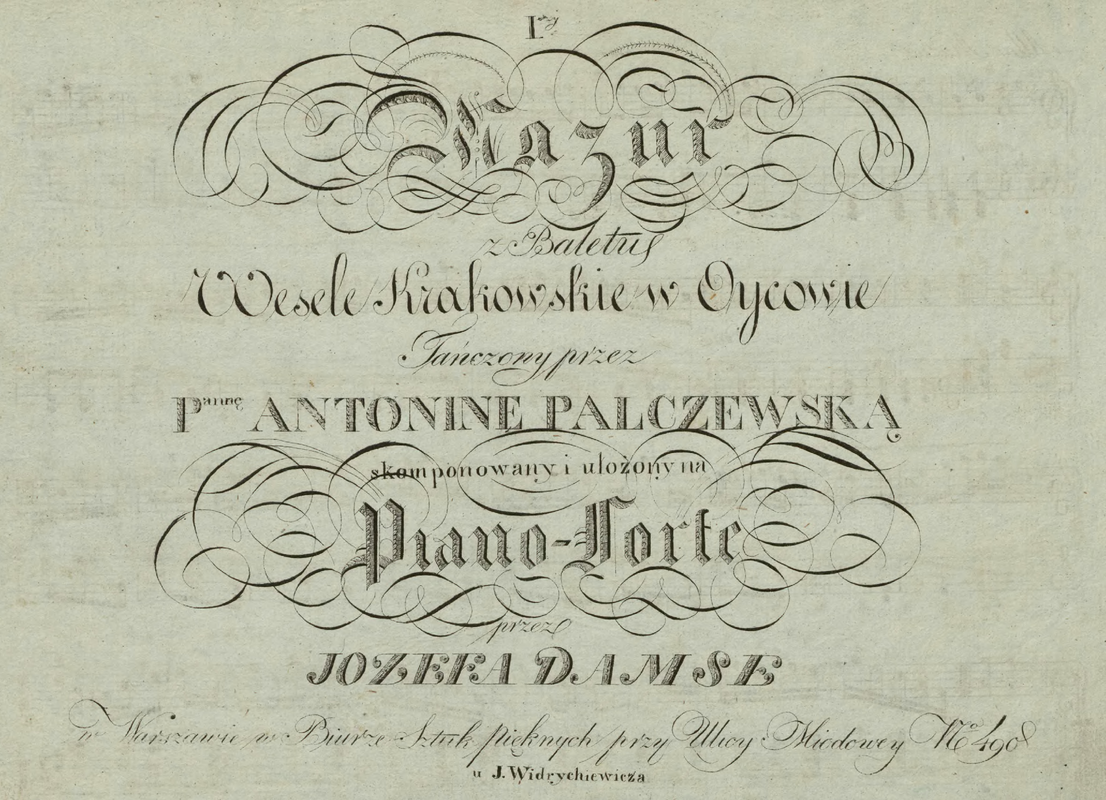 I.szy
Mazur
z Baletu
Wesele Krakowskie w Oycowie
Tańczony przez
Pannę ANTONINĘ PALCZEWSKĄ
skomponowany i ułożony na
Piano-Forte
przez
JOZEFA DAMSE
w Warszawie w Biurze Sztuk pięknych przy Ulicy Miodowey No 490
u J. Widrychiewicza